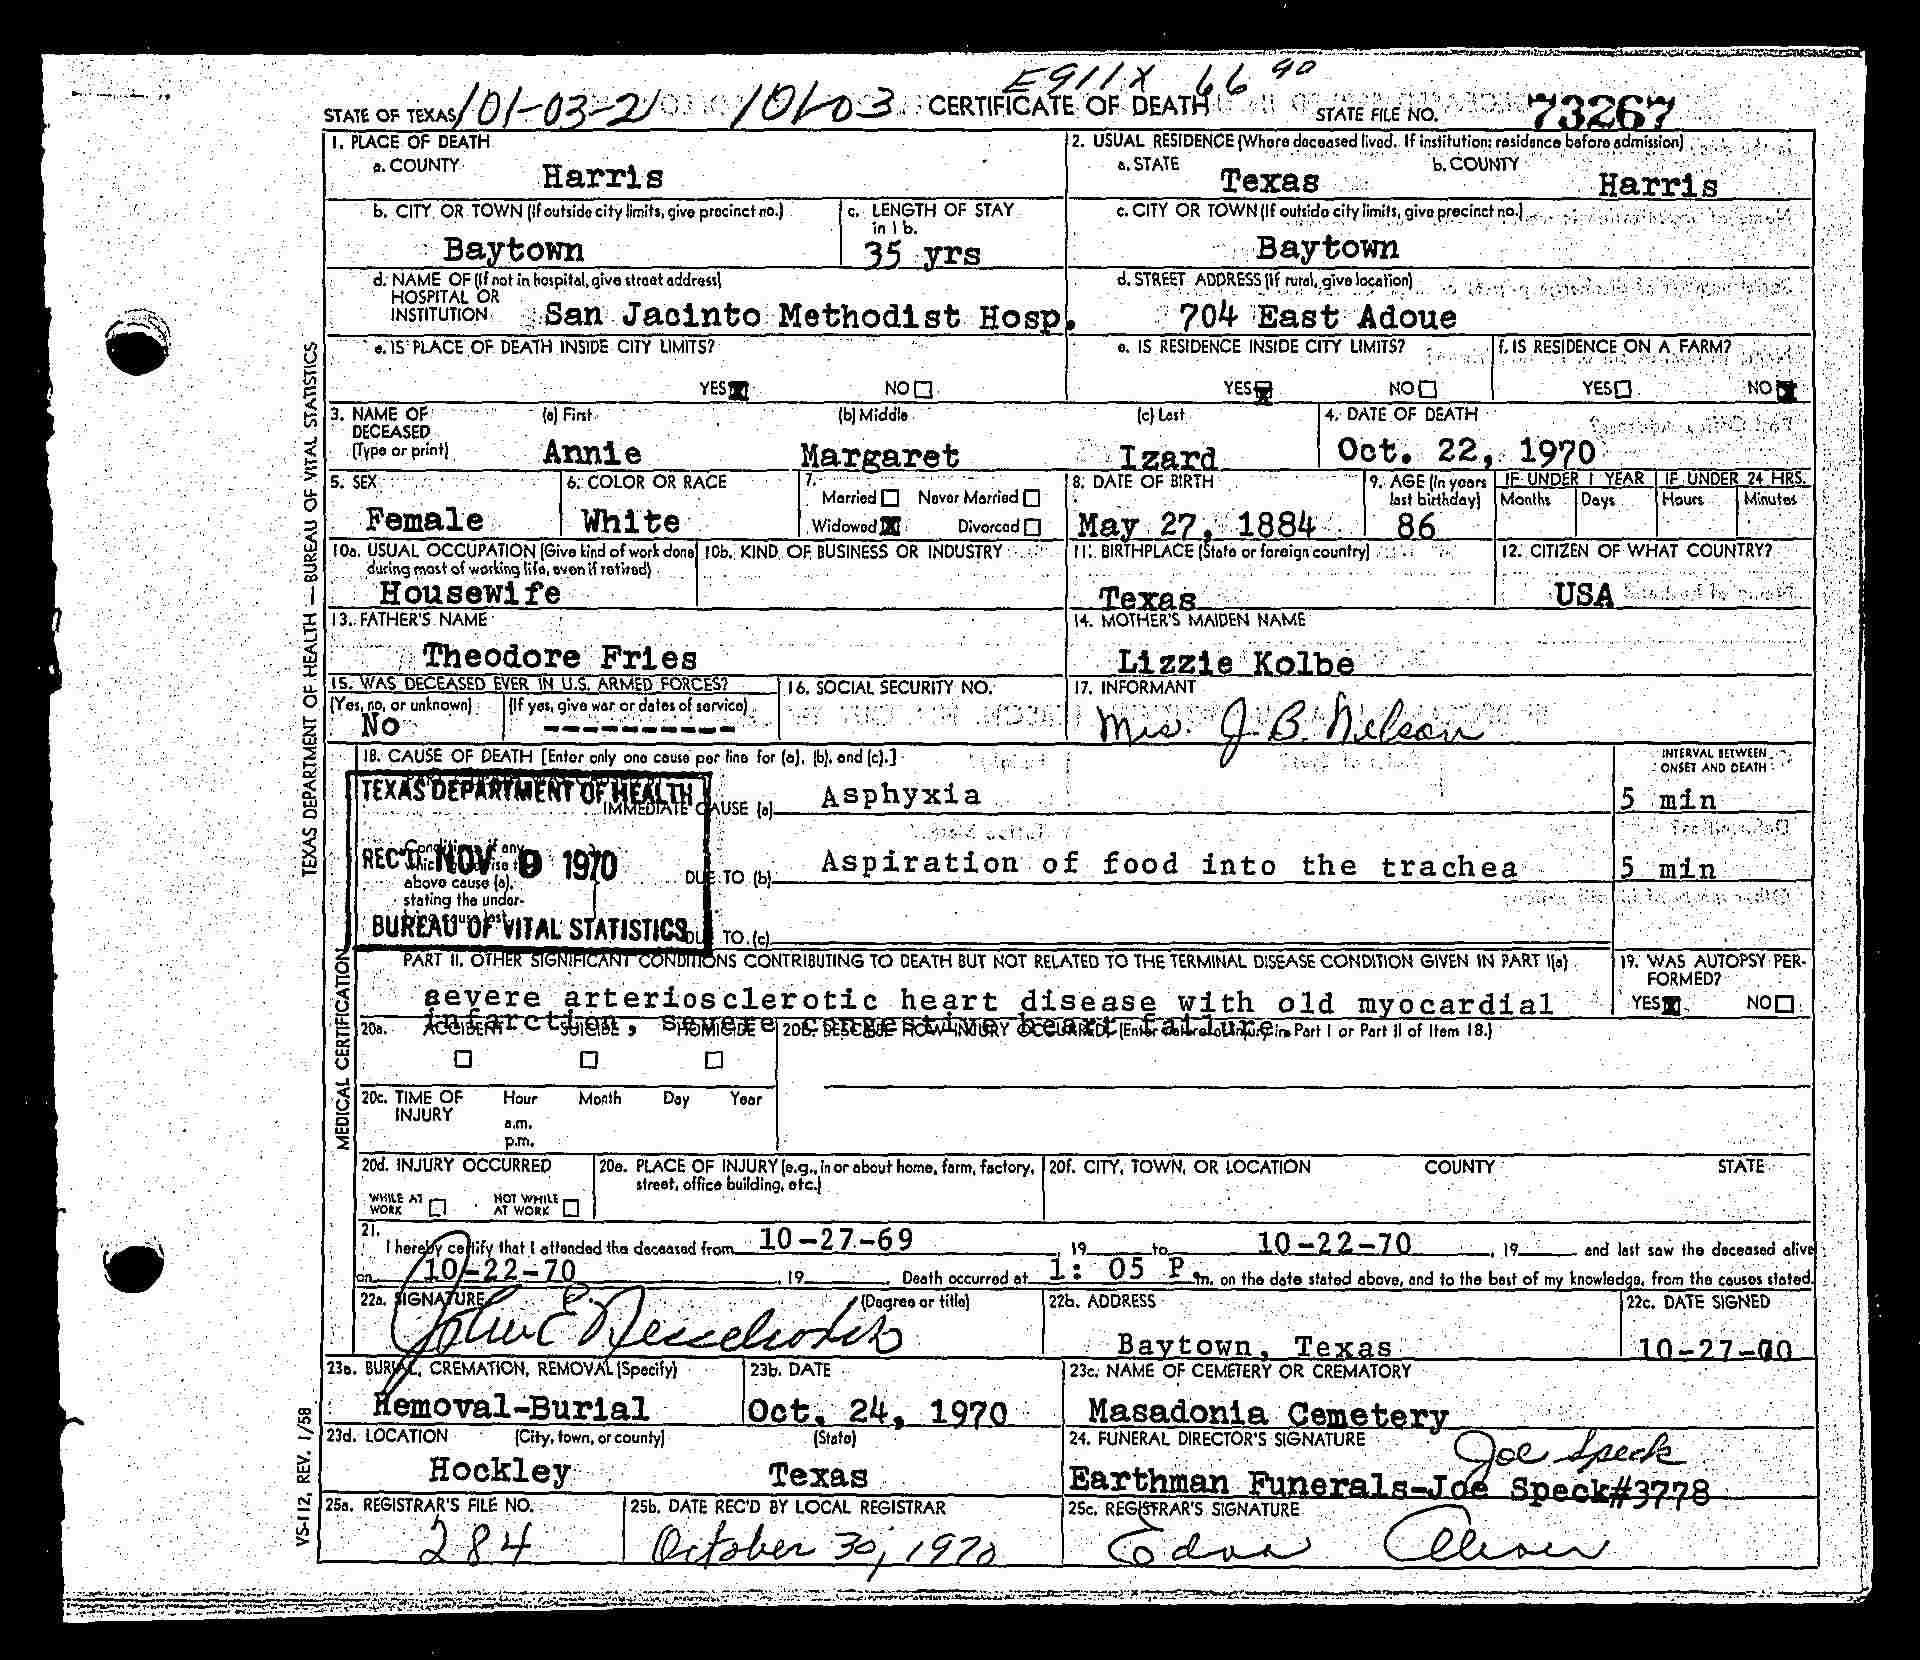 E911X 66 90
STATE OF TEXAS 101-03-21 10103 CERTIFICATE OF DEATH STATE FILE NO. 73267
1. PLACE OF DEATH
a. COUNTY Harris
2. USUAL RESIDENCE (Where deceased lived. If institution: residence before admission)
a. STATE Texas b. COUNTY Harris
b. CITY OR TOWN (If outside city limits, give precinct no.) Baytown
c. LENGTH OF STAY in 1 b. 35 yrs
c. CITY OR TOWN (If outside city limits, give precinct no.) Baytown
d. NAME OF (If not in hospital, give street address)
HOSPITAL OR
INSTITUTION San Jacinto Methodist Hosp.
d. STREET ADDRESS (If rural, give location)
704 East Adoue
e. IS PLACE OF DEATH INSIDE CITY LIMITS?
YES NO
e. IS RESIDENCE INSIDE CITY LIMITS?
YES NO
f. IS RESIDENCE ON A FARM?
YES NO
3. NAME OF DECEASED (Type or print)
(a) First (b) Middle (c) Last
Annie Margaret Izard
4. DATE OF DEATH
Oct. 22, 1970
5. SEX
Female
6. COLOR OR RACE
White
7.
Married Never Married
Widowed Divorced
8. DATE OF BIRTH
May 27, 1884
9. AGE (In years last birthday)
86
IF UNDER 1 YEAR
Months Days
IF UNDER 24 HRS.
Hours Minutes
10a. USUAL OCCUPATION (Give kind of work done during most of working life, even if retired)
Housewife
10b. KIND OF BUSINESS OR INDUSTRY
11. BIRTHPLACE (State or foreign country)
Texas
12. CITIZEN OF WHAT COUNTRY?
USA
13. FATHER'S NAME
Theodore Fries
14. MOTHER'S MAIDEN NAME
Lizzie Kolbe
15. WAS DECEASED EVER IN U.S. ARMED FORCES?
(Yes, no, or unknown) (If yes, give war or dates of service)
No ----------
16. SOCIAL SECURITY NO.
17. INFORMANT
Mrs. J. B. Nelson
18. CAUSE OF DEATH [Enter only one cause per line for (a), (b), and (c).]
INTERVAL BETWEEN ONSET AND DEATH
TEXAS DEPARTMENT OF HEALTH
REC'D NOV 9 1970
BUREAU OF VITAL STATISTICS
IMMEDIATE CAUSE (a) Asphyxia 5 min
Conditions, if any, which gave rise to above cause (a), stating the underlying cause last.
DUE TO (b) Aspiration of food into the trachea 5 min
DUE TO (c)
PART II. OTHER SIGNIFICANT CONDITIONS CONTRIBUTING TO DEATH BUT NOT RELATED TO THE TERMINAL DISEASE CONDITION GIVEN IN PART I(a)
severe arteriosclerotic heart disease with old myocardial
infarction, severe congestive heart failure.
19. WAS AUTOPSY PERFORMED?
YES NO
20a. ACCIDENT SUICIDE HOMICIDE
20b. DESCRIBE HOW INJURY OCCURRED. (Enter nature of injury in Part I or Part II of Item 18.)
20c. TIME OF INJURY Hour Month Day Year
a.m.
p.m.
20d. INJURY OCCURRED
WHILE AT WORK NOT WHILE AT WORK
20e. PLACE OF INJURY (e.g., in or about home, farm, factory, street, office building, etc.)
20f. CITY, TOWN, OR LOCATION COUNTY STATE
21.
I hereby certify that I attended the deceased from 10-27-69, 19 to 10-22-70, 19 and last saw the deceased alive
on 10-22-70, 19 Death occurred at 1: 05 P.m. on the date stated above, and to the best of my knowledge, from the causes stated.
22a. SIGNATURE (Degree or title)
John E.
22b. ADDRESS
Baytown, Texas
22c. DATE SIGNED
10-27-70
23a. BURIAL, CREMATION, REMOVAL (Specify)
Removal-Burial
23b. DATE
Oct. 24, 1970
23c. NAME OF CEMETERY OR CREMATORY
Masadonia Cemetery
23d. LOCATION (City, town, or county) (State)
Hockley Texas
24. FUNERAL DIRECTOR'S SIGNATURE Joe Speck
Earthman Funerals-Joe Speck#3778
25a. REGISTRAR'S FILE NO.
284
25b. DATE REC'D BY LOCAL REGISTRAR
October 30, 1970
25c. REGISTRAR'S SIGNATURE
Edna
TEXAS DEPARTMENT OF HEALTH — BUREAU OF VITAL STATISTICS
MEDICAL CERTIFICATION
VS-112, REV. 1/58